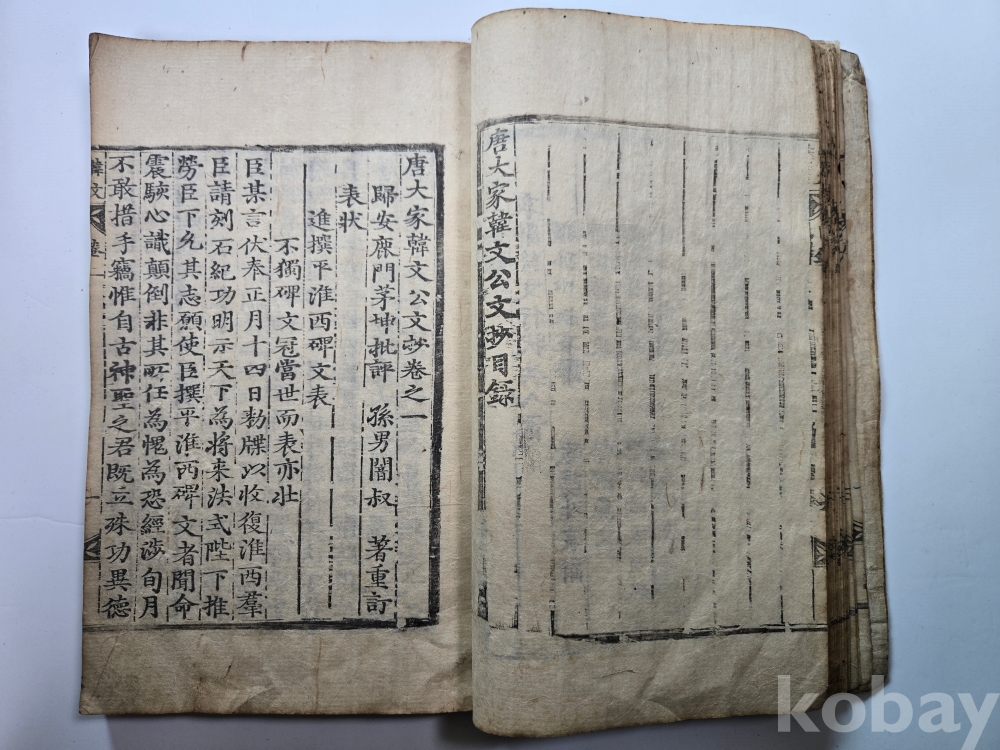 唐大家韓文公文抄目録
唐大家韓文公文抄卷之一
歸安鹿門茅坤批評 孫男闇叔 著重訂
表状
進撰平淮西碑文表
不獨碑文冠當世而表亦壮
臣某言伏奉正月十四日勑牒以收復淮西羣
臣請刻石紀功明示天下為将来法式陛下推
勞臣下允其志願使臣撰平淮西碑文者聞命
震駭心識顛倒非其所任為愧為恐經渉旬月
不敢措手竊惟自古神聖之君既立殊功異德
韓文 卷一
kobay